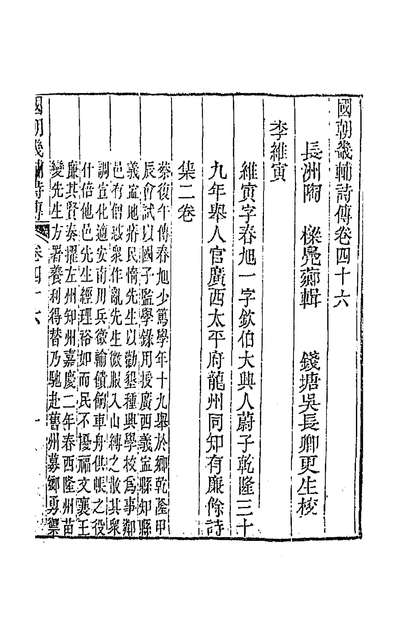 國朝畿輔詩傳卷四十六
長洲陶　樑鳧薌輯　錢塘吳長卿更生校
李維寅
維寅字春旭一字欽伯大興人蔚子乾隆三十
九年舉人官廣西太平府龍州同知有廉餘詩
集二卷
蔡復午傳春旭少篤學年十九舉於鄉乾隆甲
辰會試以國子監學錄用授廣西義寧縣知縣
義寧地瘠民惰先生以勸墾種興學校為事鄰
邑有劊眾作亂先生微服入山縛之散其眾
調宣化適安南用兵徵輸儹餉車舟供帳之役
什倍他邑先生經理裕如而民不擾福文襄王
廉其賢奏擢左州知州嘉慶二年春西隆州苗
變先生方署養利得替乃馳赴舊州募鄉勇禦
國朝畿輔詩傳　卷四十六　一